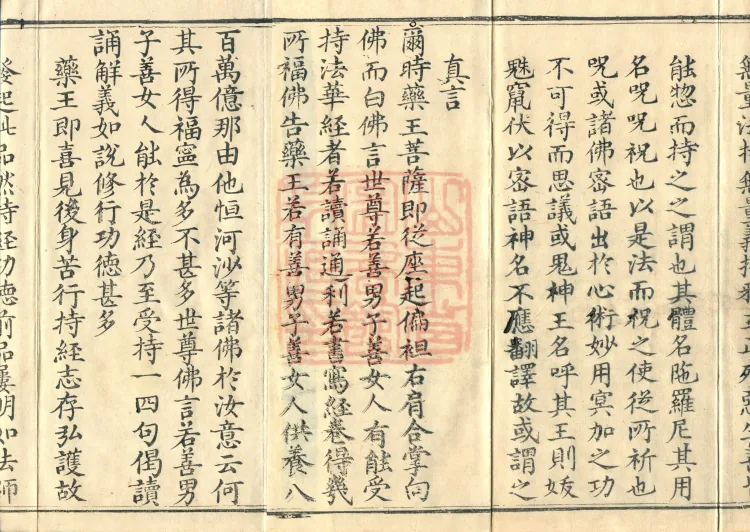 無量法持無量義持
能惣而持之之謂也其體名陁羅尼其用
名呪呪祝也以是法而祝之使從所祈也
呪或諸佛密語出於心術妙用冥加之功
不可得而思議或鬼神王名呼其王則妭
魅竄伏以密語神名不應翻譯故或謂之
真言
爾時藥王菩薩即從座起偏袒右肩合掌向
佛而白佛言世尊若善男子善女人有能受
持法華經者若讀誦通利若書寫經卷得幾
所福佛告藥王若有善男子善女人供養八
百萬億那由他恒河沙等諸佛於汝意云何
其所得福寧為多不甚多世尊佛言若善男
子善女人能於是經乃至受持一四句偈讀
誦解義如說修行功德甚多
藥王即喜見後身苦行持經志存弘護故
發起此品然持經功德前品屢明如法師